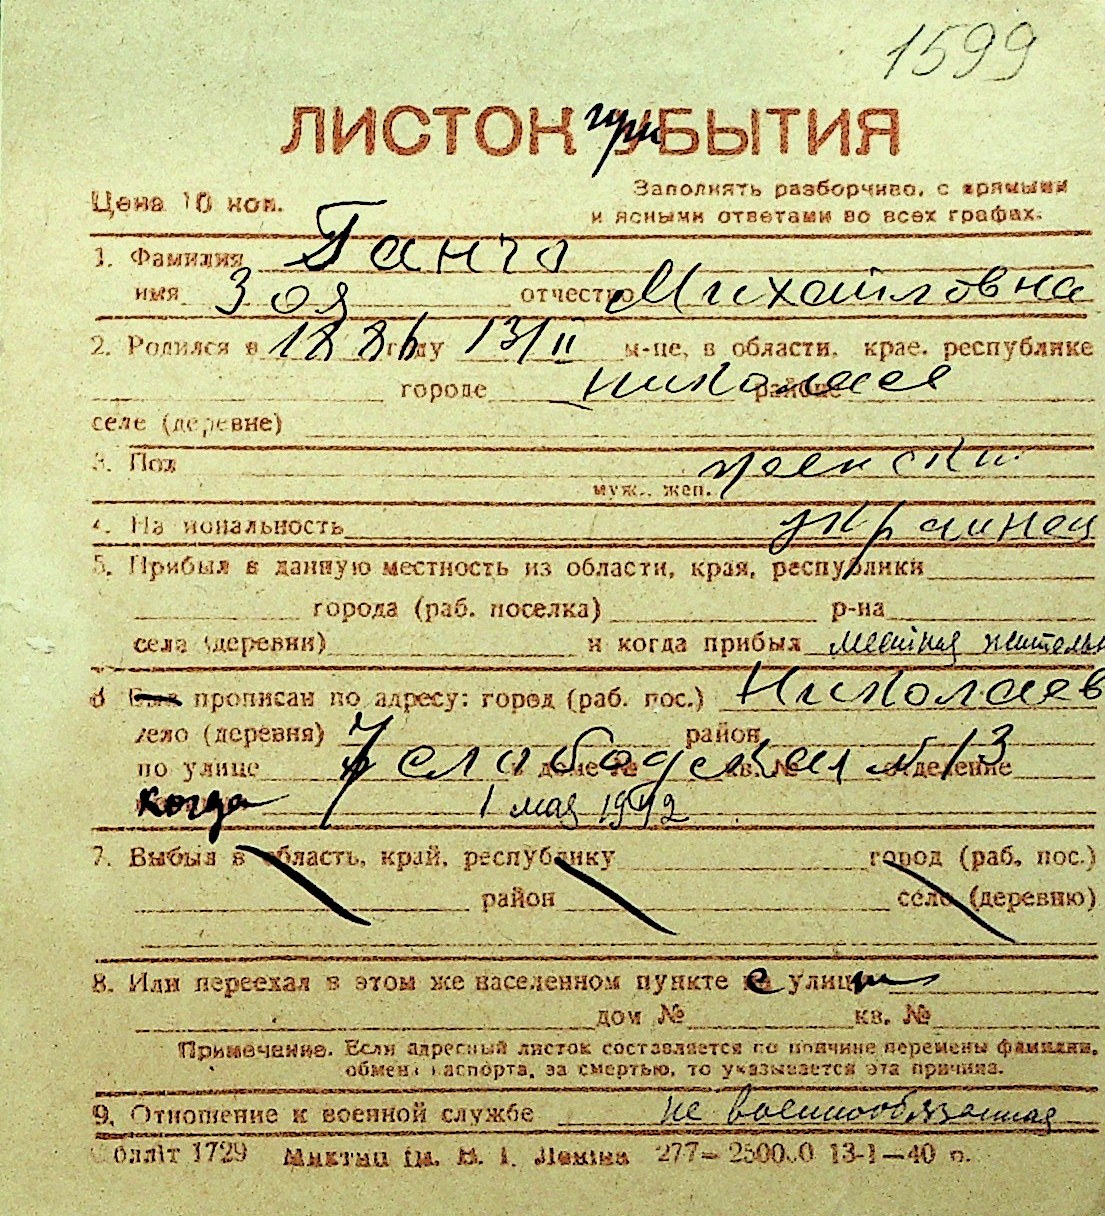 1599
ЛИСТОК прибытия
Цена 10 коп.
Заполнять разборчиво, с прямыми
и ясными ответами во всех графах.
1. Фамилия Ганчо
имя Зоя отчество Михайловна
2. Родился в 1886 году 13/II м-це, в области, крае, республике
городе Николаев районе
селе (деревне)
3. Пол женски
муж., жен.
4. Национальность украинец
5. Прибыл в данную местность из области, края, республики
города (раб. поселка) р-на
села (деревни) и когда прибыл местная жительн
6 прописан по адресу: город (раб. пос.) Николаев
село (деревня) район
по улице 7 слободская № 13 в доме № кв. № отделение
когда 1 мая 1942
7. Выбыл в область, край, республику город (раб. пос.)
район село (деревню)
8. Или переехал в этом же населенном пункте с улицы
дом № кв. №
Примечание. Если адресный листок составляется по причине перемены фамилии,
обмена паспорта, за смертью, то указывается эта причина.
9. Отношение к военной службе не военнообязанная
Обліт 1729 ім. В. І. Леніна 277— 13-1—40 р.